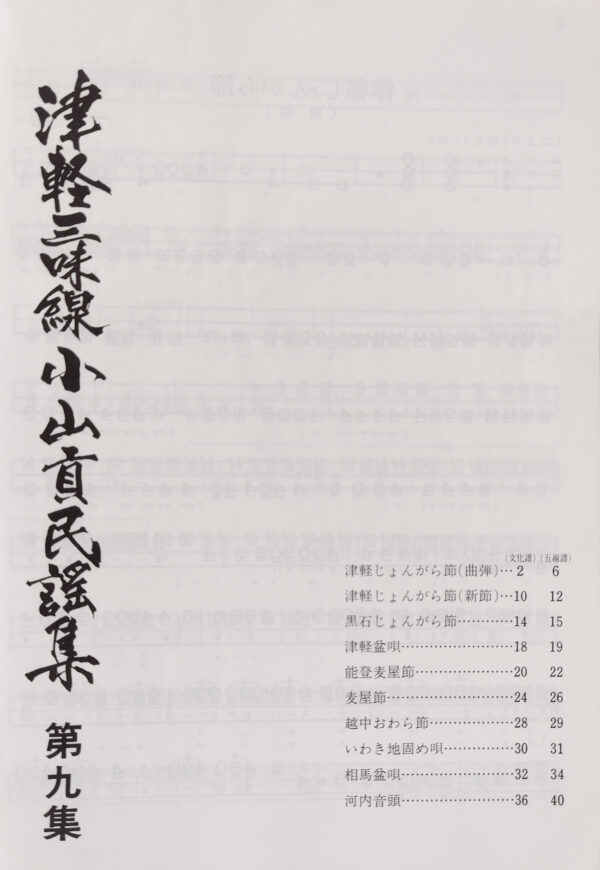 津軽三味線小山貢民謡集
第九集
(文化譜)(五線譜)
津軽じょんがら節(曲弾)…2 6
津軽じょんがら節(新節)…10 12
黒石じょんがら節…………14 15
津軽盆唄……………………18 19
能登麦屋節…………………20 22
麦屋節………………………24 26
越中おわら節………………28 29
いわき地固め唄……………30 31
相馬盆唄……………………32 34
河内音頭……………………36 40